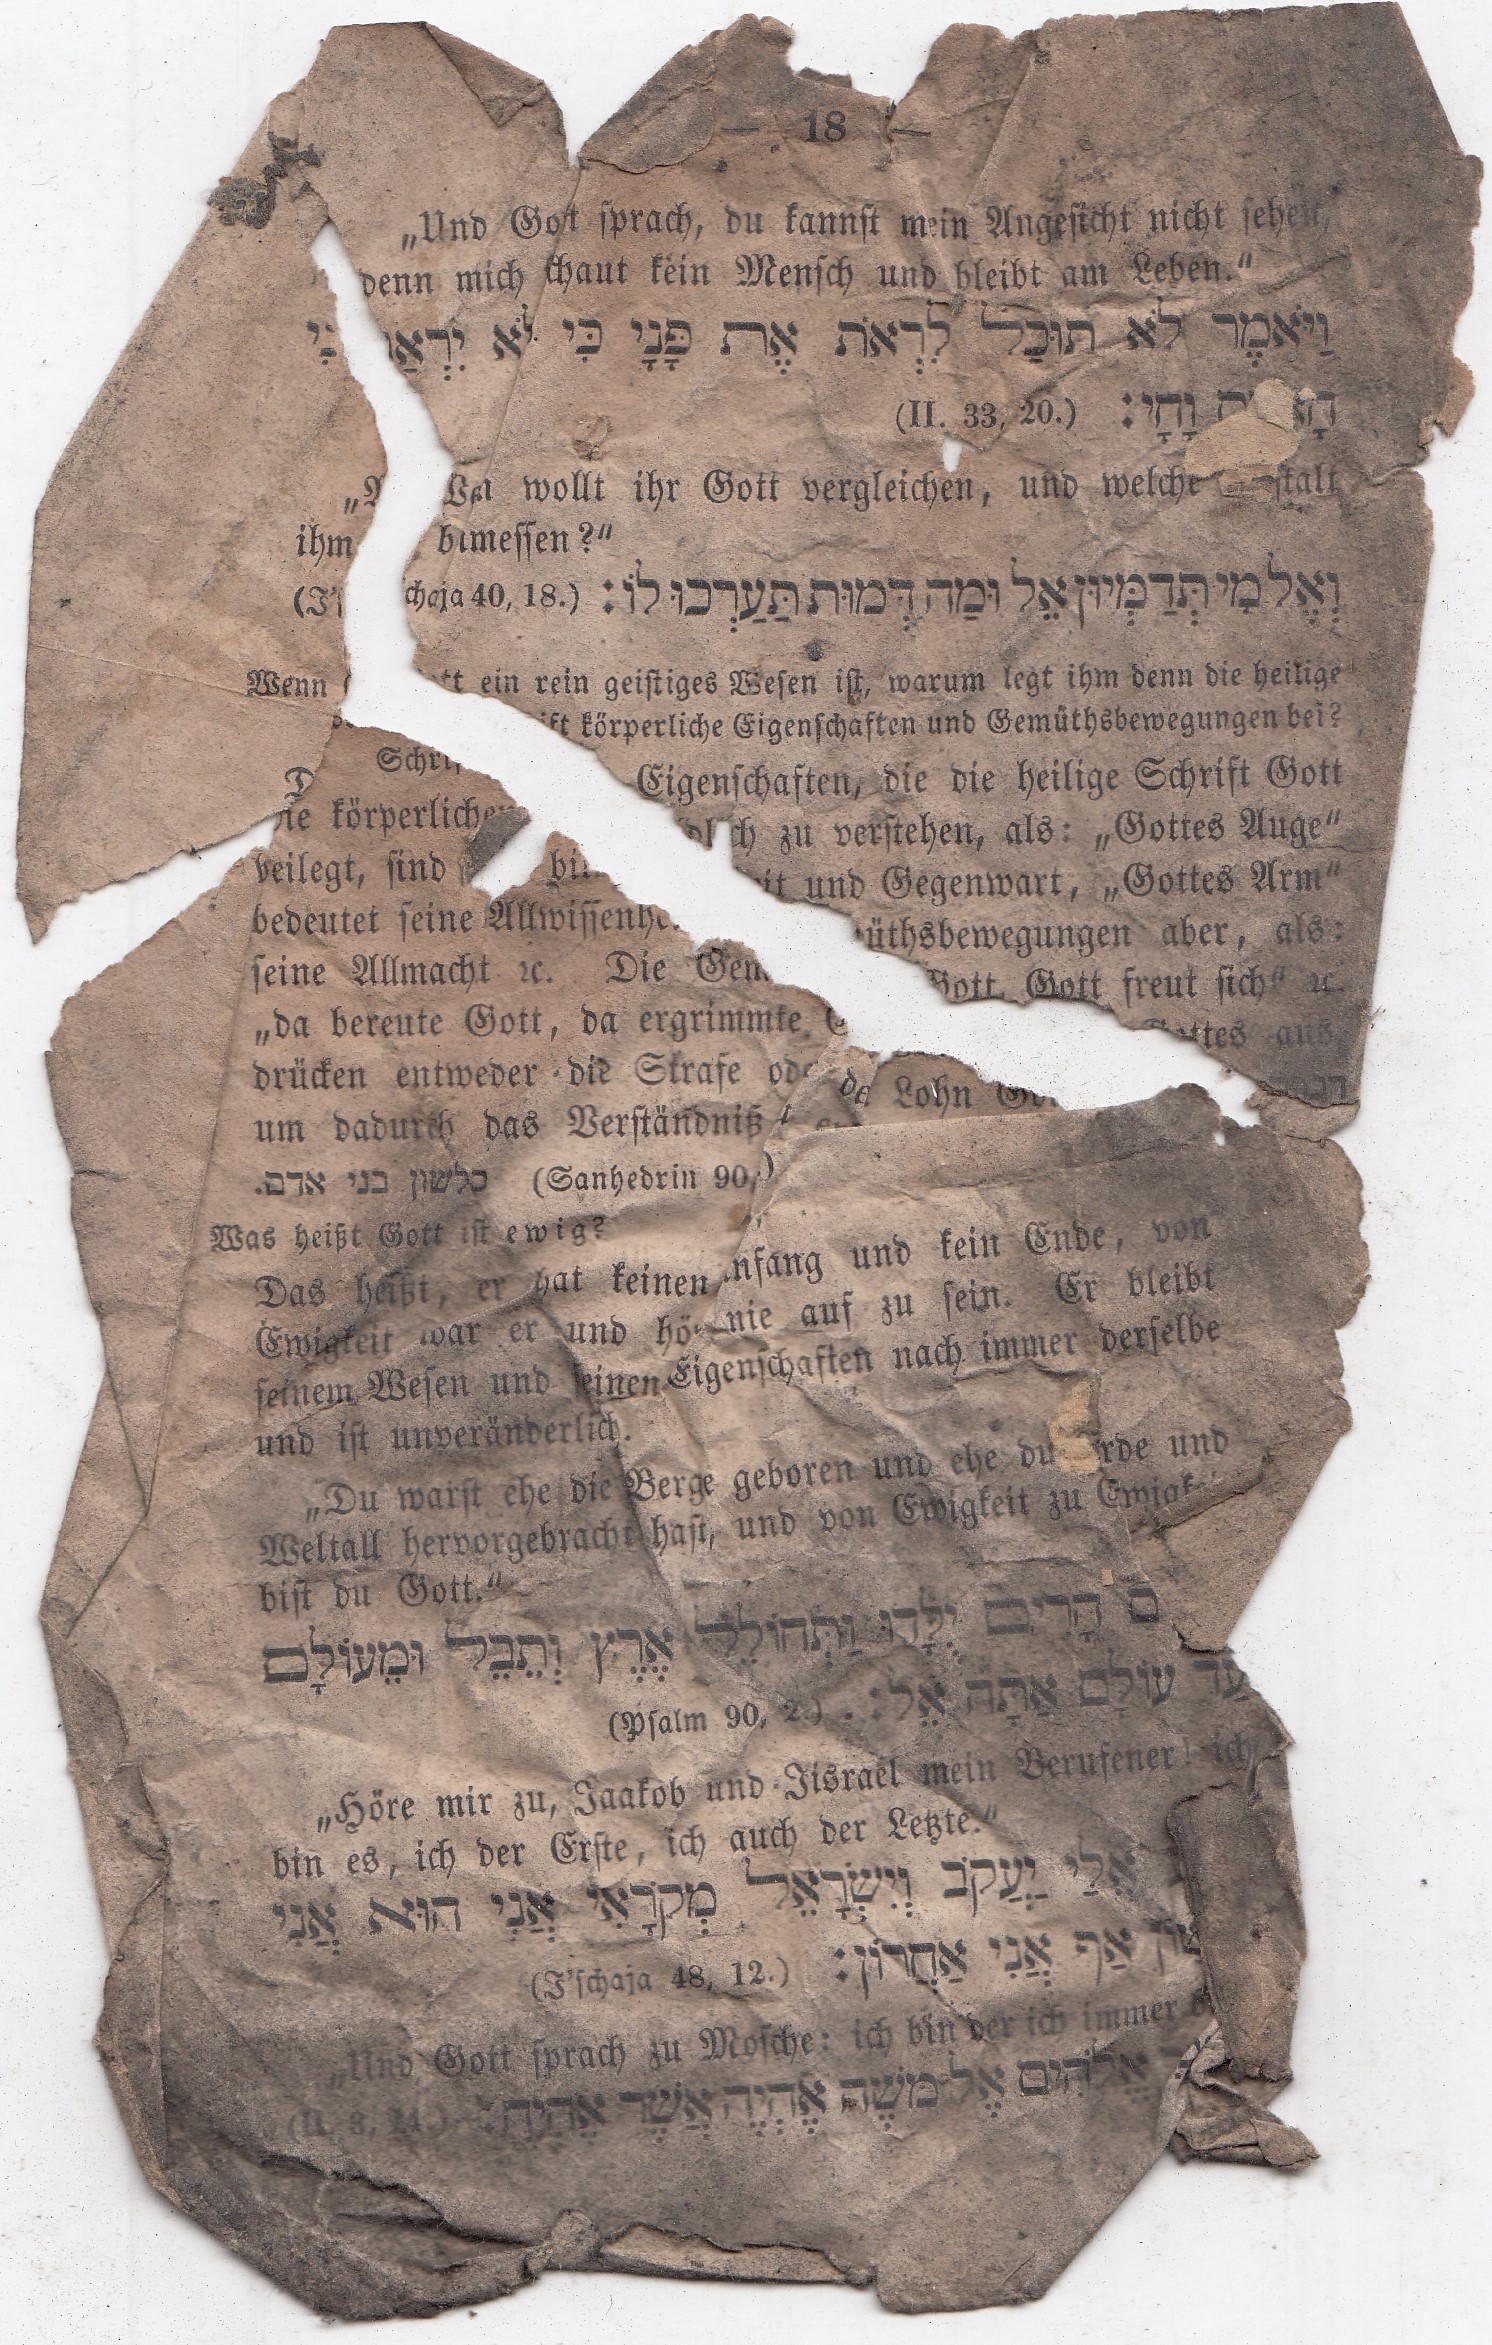 — 18 —
„Und Gott sprach, du kannst mein Angesicht nicht sehen,
denn mich schaut kein Mensch und bleibt am Leben.“
וַיֹּאמֶר לֹא תוּכַל לִרְאֹת אֶת פָּנָי כִּי לֹא
וָחָי׃ (II. 33, 20.)
wollt ihr Gott vergleichen, und welche
ihm
וְאֶל מִי תְּדַמְּיוּן אֵל וּמַה דְּמוּת תַּעַרְכוּ לוֹ׃ 40, 18.)
Wenn ein rein geistiges Wesen ist, warum legt ihm denn die heilige
körperliche Eigenschaften und Gemüthsbewegungen bei?
Die körperlichen Eigenschaften, die die heilige Schrift Gott
beilegt, sind zu verstehen, als: „Gottes Auge“
bedeutet seine Allwissenheit und Gegenwart, „Gottes Arm“
seine Allmacht ꝛc. Die Gemüthsbewegungen aber, als:
„da bereute Gott, da ergrimmte Gott, Gott freut sich“ ꝛc.
drücken entweder die Strafe oder Lohn Gottes aus,
um dadurch das Verständniß
כלשון בני אדם. (Sanhedrin 90,)
Was heißt Gott ist ewig?
Das heißt, er hat keinen Anfang und kein Ende, von
Ewigkeit war er und hört nie auf zu sein. Er bleibt
seinem Wesen und seinen Eigenschaften nach immer derselbe
und ist unveränderlich.
„Du warst ehe die Berge geboren und ehe du Erde und
Weltall hervorgebracht hast, und von Ewigkeit zu Ewigkeit
bist du Gott.“
הָרִים יֻלָּדוּ וַתְּחוֹלֵל אֶרֶץ וְתֵבֵל וּמֵעוֹלָם
עַד עוֹלָם אַתָּה אֵל׃ (Psalm 90, 2.)
„Höre mir zu, Jaakob und Jisraël mein Berufener! ich
bin es, ich der Erste, ich auch der Letzte.“
אֵלַי יַעֲקֹב וְיִשְׂרָאֵל מְקֹרָאִי אֲנִי הוּא אֲנִי
אַף אֲנִי אַחֲרוֹן׃ (J'schaja 48, 12.)
„Und Gott sprach zu Mosche: ich bin der ich immer
אֱלֹהִים אֶל מֹשֶׁה אֶהְיֶה אֲשֶׁר אֶהְיֶה׃ (II. 3, 14.)